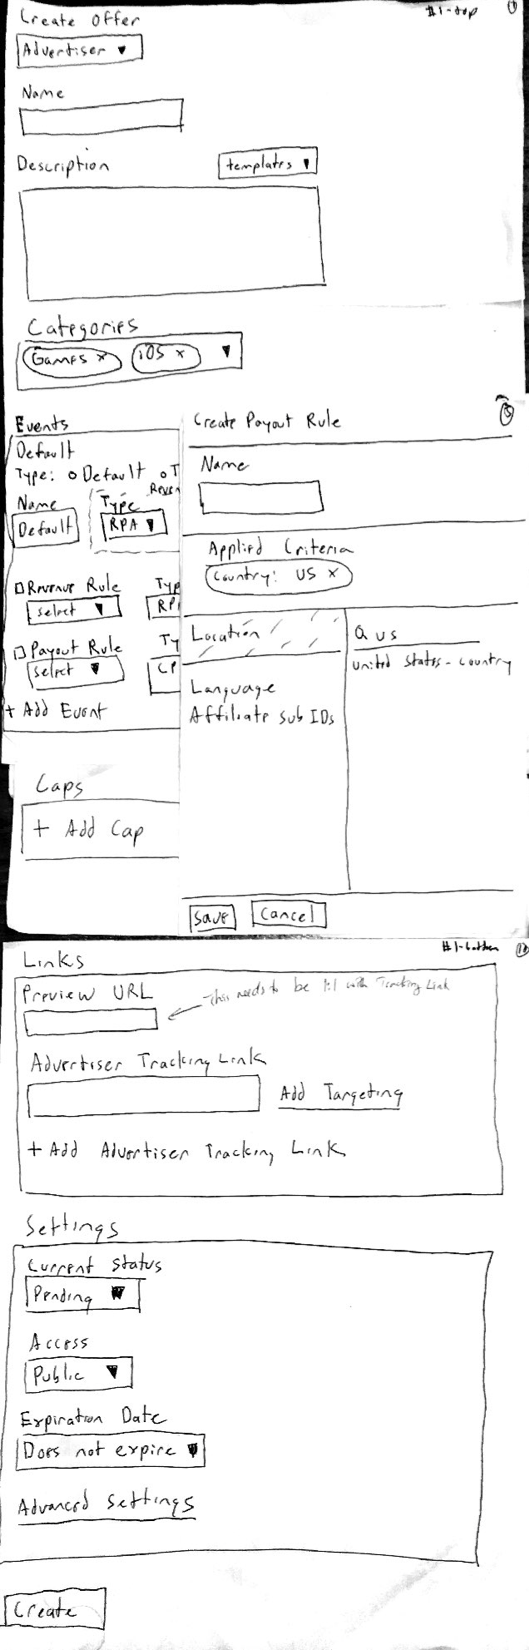 Create Offer
#1-top
Advertiser ▼
Name
Description
templates ▼
Categories
Games x
iOS x ▼
Events
Default
Type: o Default o T
Reven
Name
Type
Default
RPA ▼
Revenue Rule
Typ
select ▼
RP
Payout Rule
Ty
select ▼
CP
+ Add Event
Caps
+ Add Cap
Create Payout Rule
Name
Applied Criteria
Country: US x
Location
Language
Affiliate Sub IDs
Q us
United States - Country
Save
Cancel
#1-bottom
Links
Preview URL
this needs to be 1:1 with Tracking Link
Advertiser Tracking Link
Add Targeting
+ Add Advertiser Tracking Link
Settings
Current Status
Pending ▼
Access
Public ▼
Expiration Date
Does not expire ▼
Advanced Settings
Create